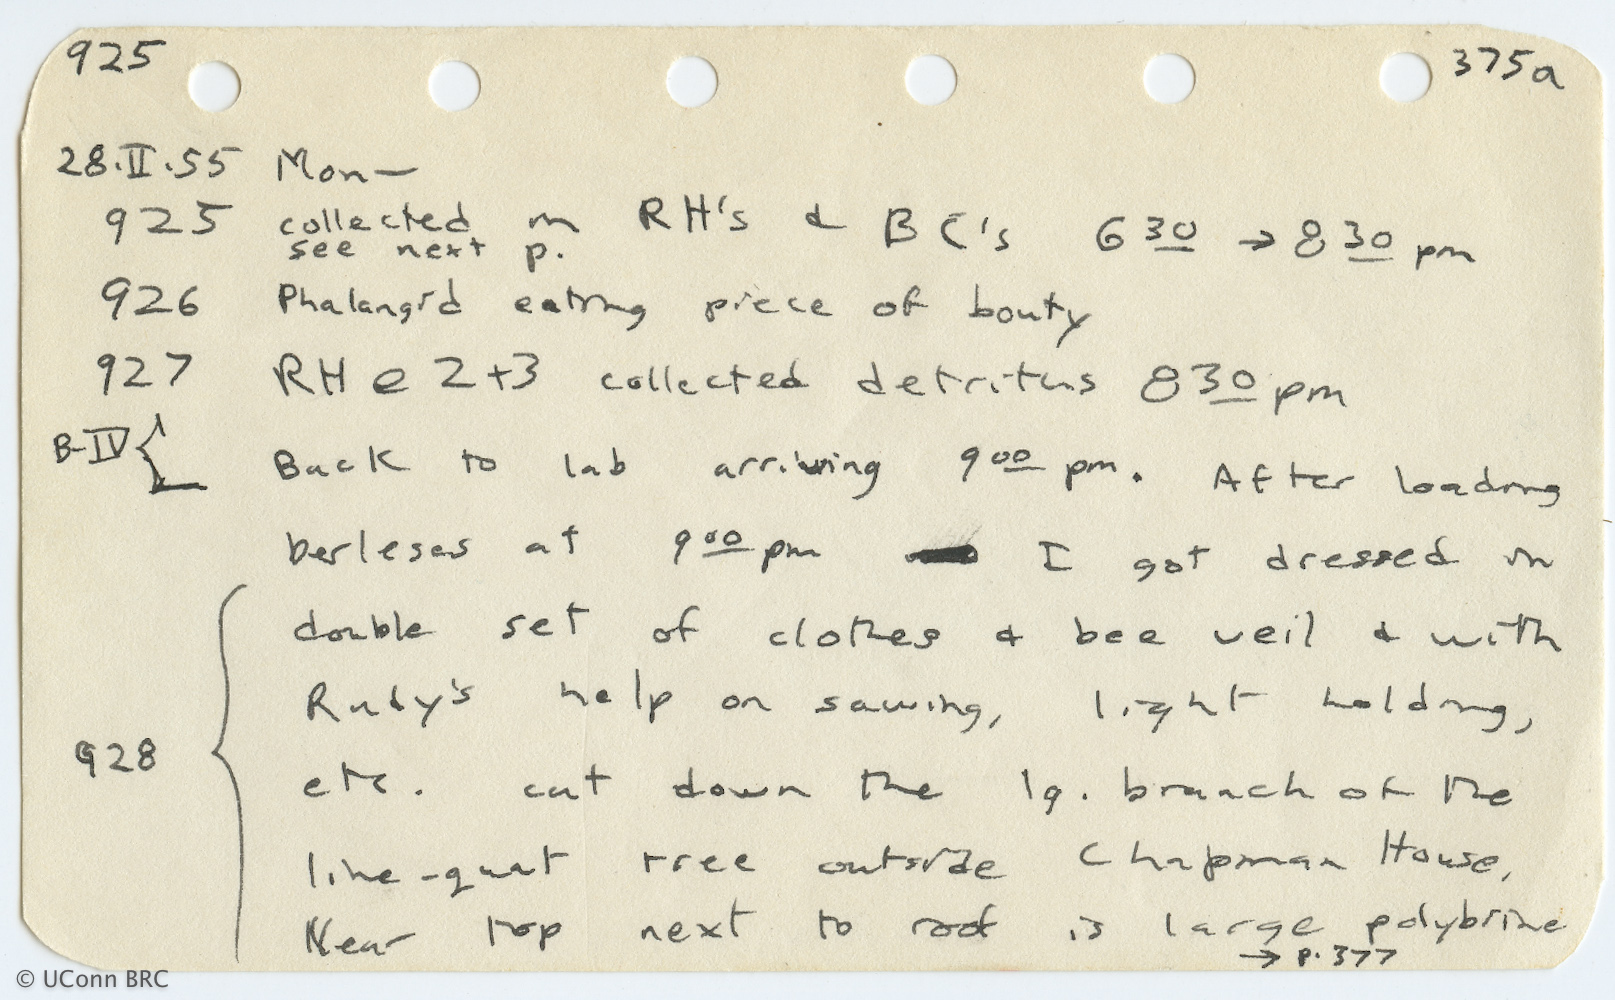 925 375a
28.II.55 Mon—
925 collected in RH's & BC's 6 30 → 8 30 pm
see next p.
926 Phalangid eating piece of booty
927 RH e 2+3 collected detritus 8 30 pm
B-IV { Back to lab arriving 9 00 pm. After loading
berleses at 9 00 pm I got dressed in
double set of clothes & bee veil & with
Rudy's help on sawing, light holding,
928 etc. cut down the lg. branch of the
lime-quat tree outside Chapman House,
Near top next to roof is large polybiine
→ p. 377
© UConn BRC